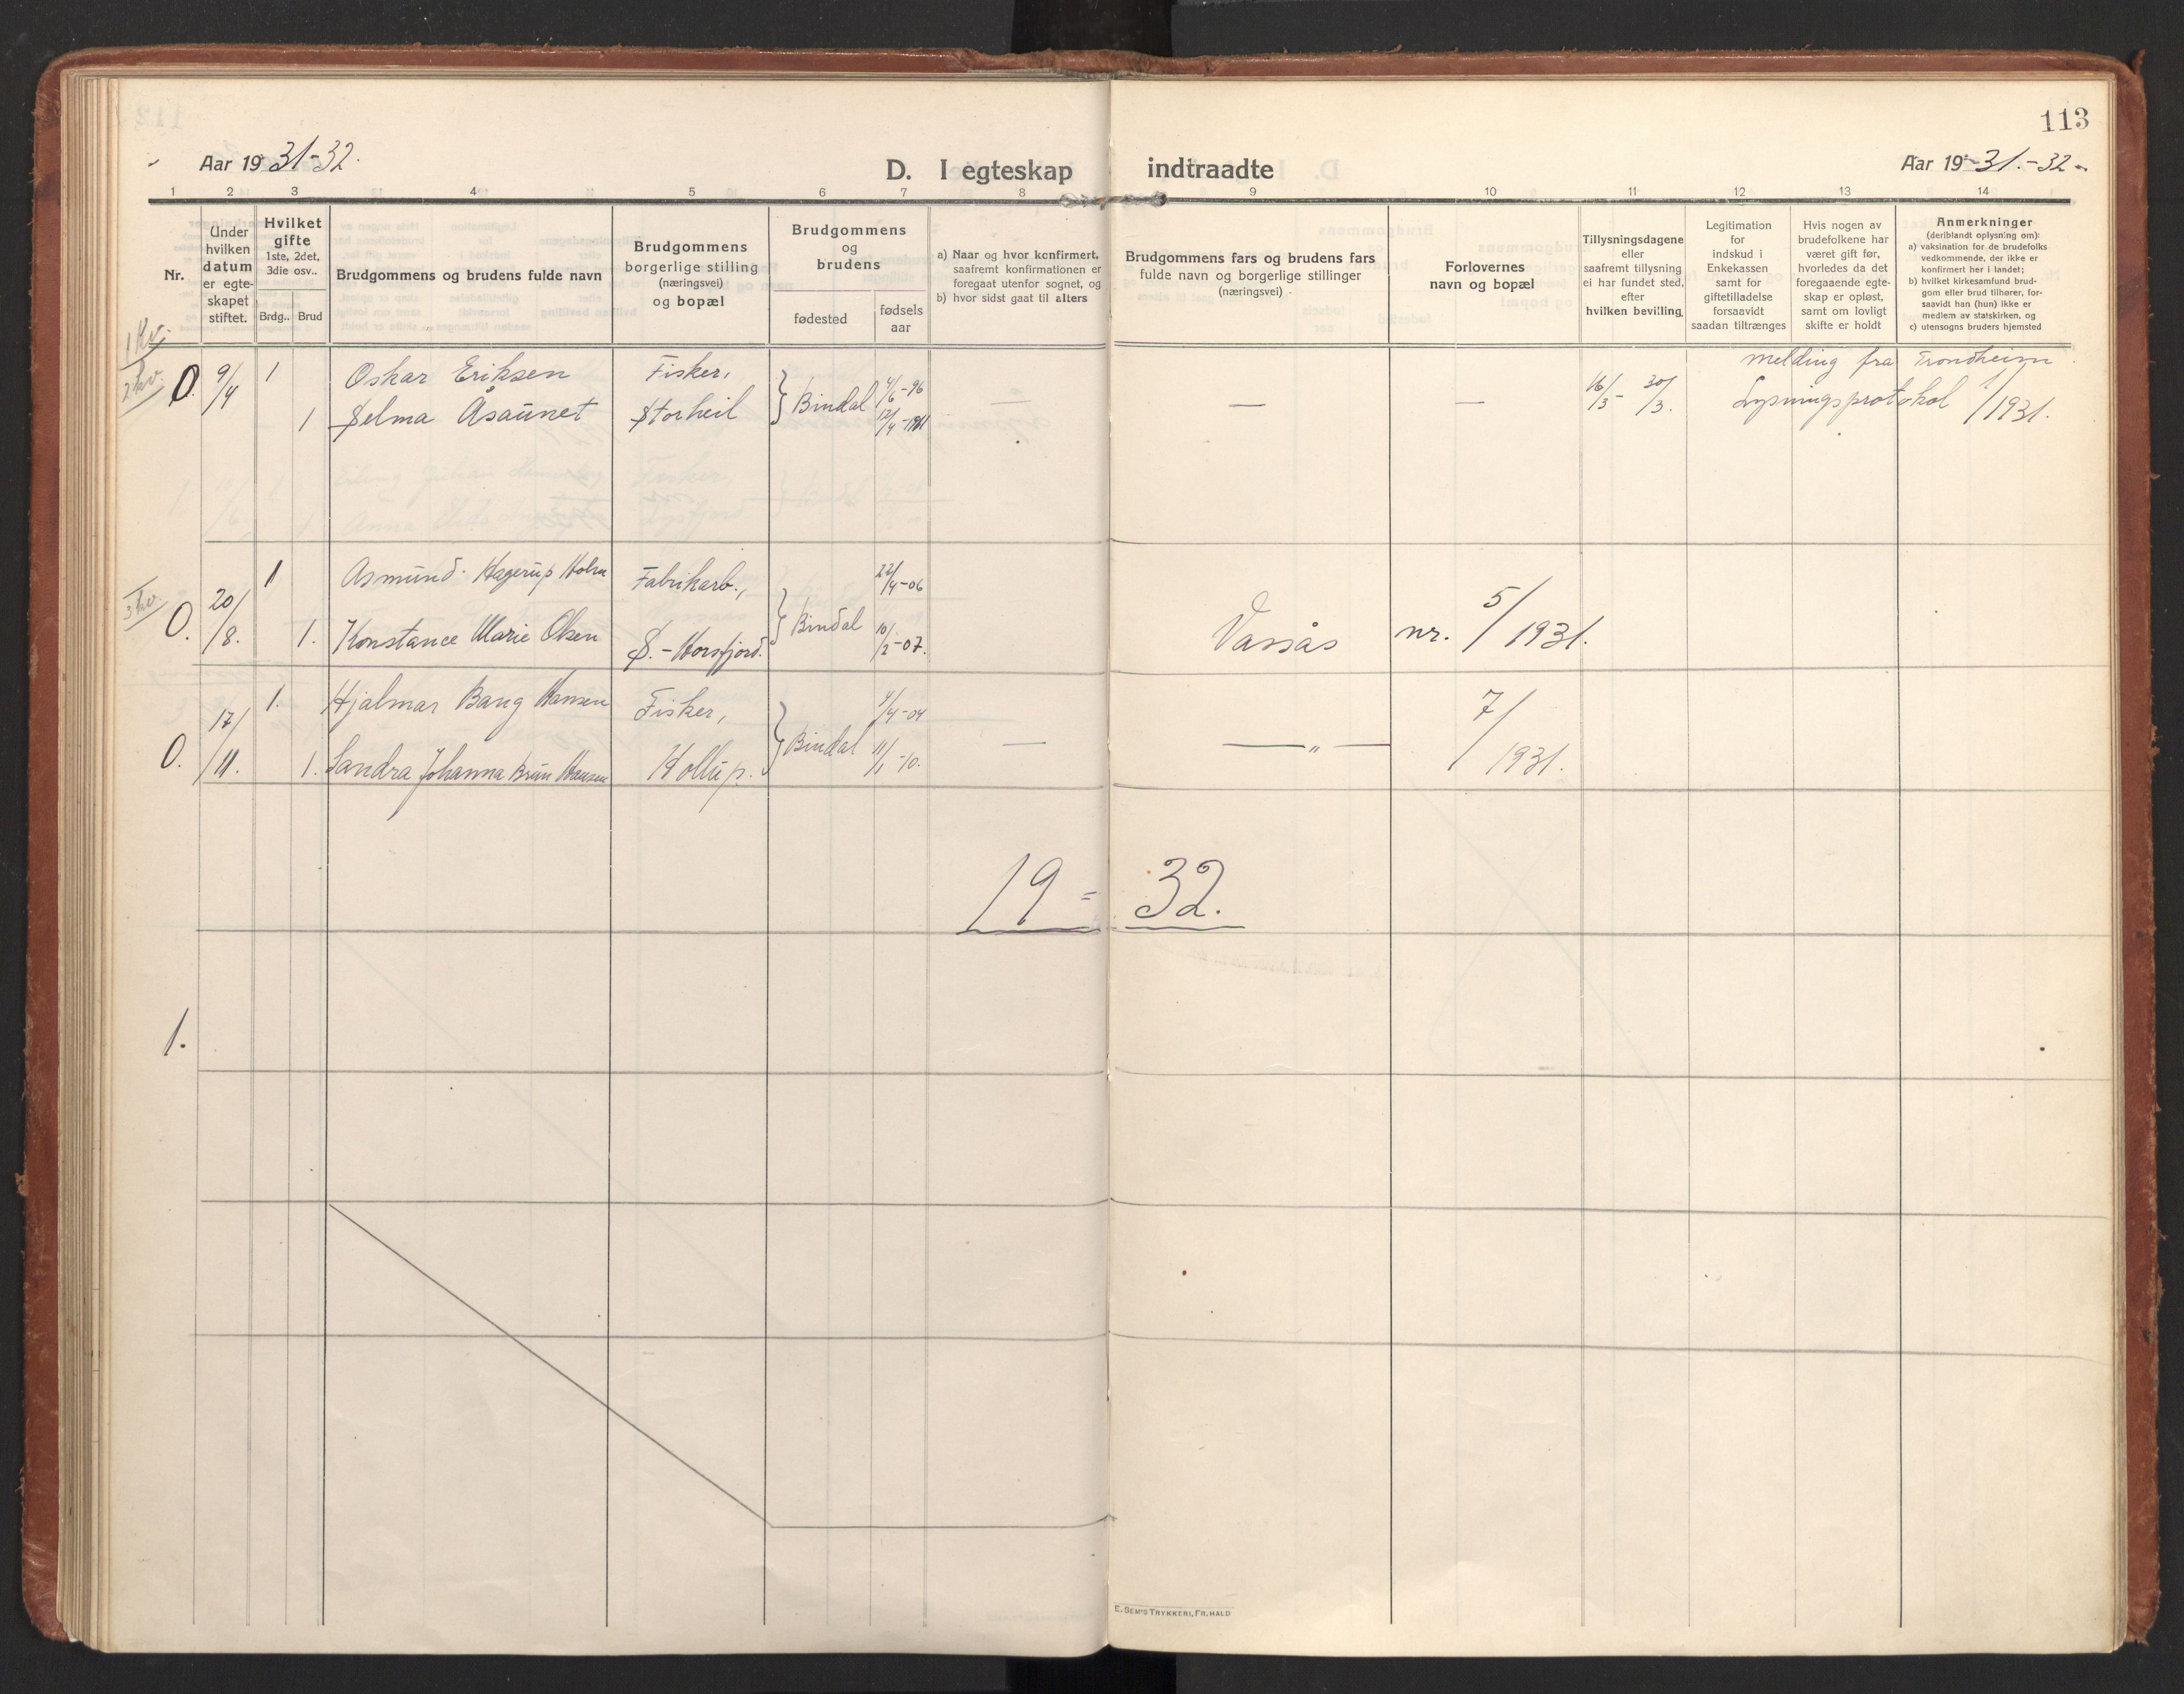 113
Aar 1931-32.
D. I egteskap indtraadte
Aar 19 31.-32.
1 2 3 4 5 6 7 8 9 10 11 12 13 14
Nr.
Under hvilken datum er egteskapet stiftet.
Hvilket gifte 1ste, 2det, 3die osv..
Brdg.. Brud
Brudgommens og brudens fulde navn
Brudgommens borgerlige stilling (næringsvei) og bopæl
Brudgommens og brudens
fødested
fødsels aar
a) Naar og hvor konfirmert, saafremt konfirmationen er foregaat utenfor sognet, og
b) hvor sidst gaat til alters
Brudgommens fars og brudens fars fulde navn og borgerlige stillinger (næringsvei)
Forlovernes navn og bopæl
Tillysningsdagene eller saafremt tillysning ei har fundet sted, efter hvilken bevilling.
Legitimation for indskud i Enkekassen samt for giftetilladelse forsaavidt saadan tiltrænges
Hvis nogen av brudefolkene har været gift før, hvorledes da det foregaaende egteskap er opløst, samt om lovligt skifte er holdt
Anmerkninger
(deriblandt oplysning om):
a) vaksination for de brudefolks vedkommende, der ikke er konfirmert her i landet;
b) hvilket kirkesamfund brudgom eller brud tilhører, forsaavidt han (hun) ikke er medlem av statskirken, og
c) utensogns bruders hjemsted
1 kv.
2 kv.
0. 9/4 1 Oskar Eriksen Fisker, Bindal 4/6-96 — — — 16/3- 30/3. melding fra Trondheim
1 Selma Åsaunet Storheil 12/4-1911 Lysningsprotokol 1/1931.
3 kv.
0. 20/8. 1 Asmund Hagerup Holm Fabrikarb., Bindal 22/4-06 Vassås nr. 5/1931.
1. Konstance Marie Olsen S.-Horsfjord. 10/2-07.
0. 17/11. 1. Hjalmar Bang Hansen Fisker, Bindal 4/4-04 — —„— 7/1931.
1. Sandra Johanna Brun Hansen Hollup. 11/1-10.
19 = 32.
1.
E. SEM'S TRYKKERI, FR.HALD